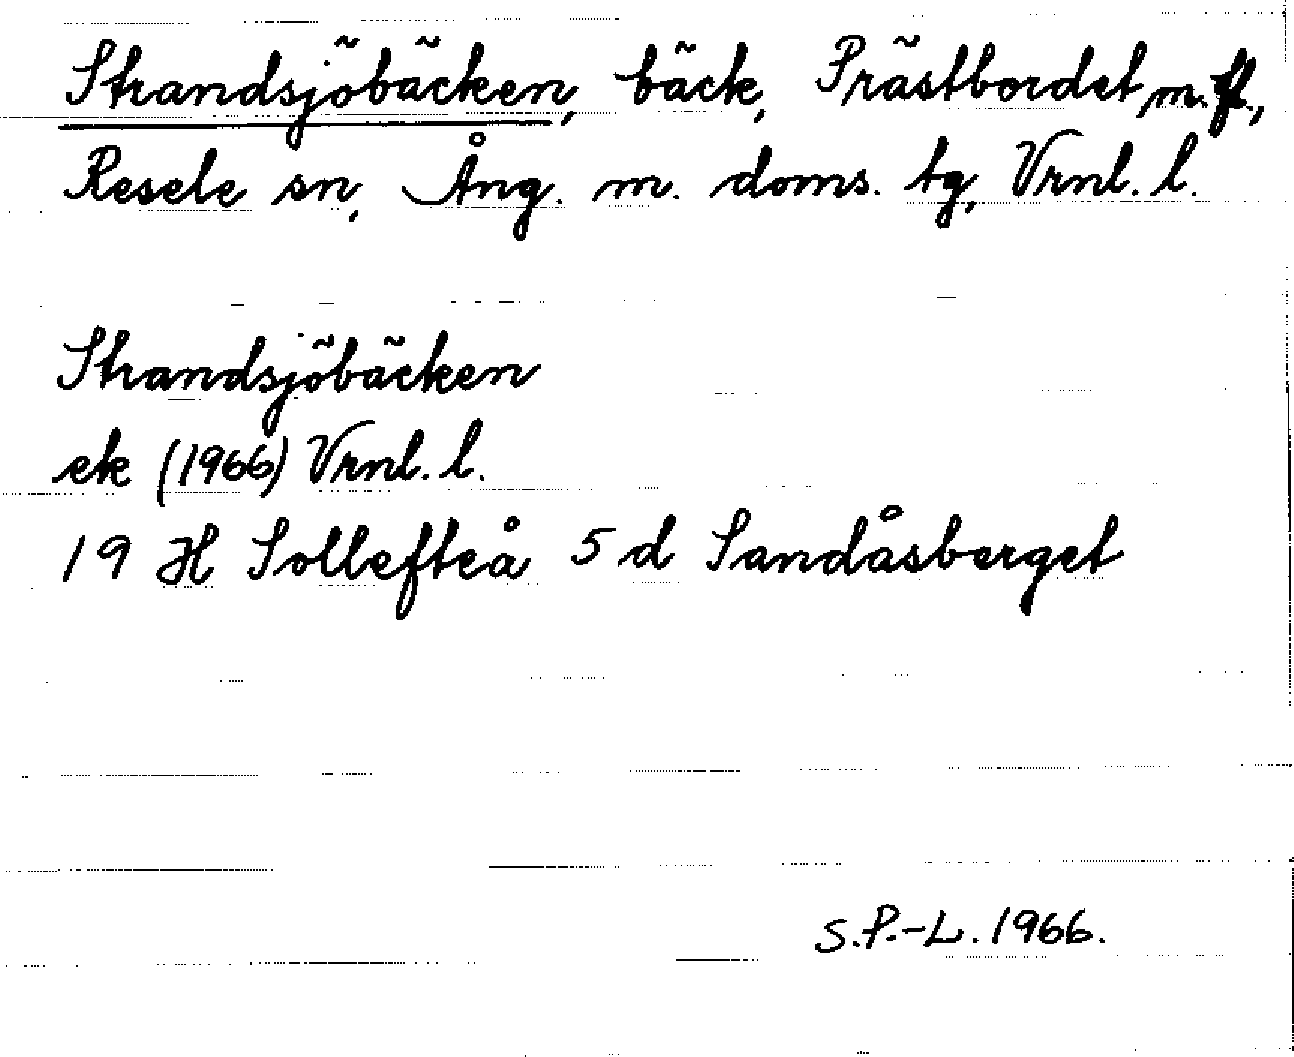 Strandsjöbäcken, bäck, Prästbordet m.fl.,
Resele sn, Ång. m. doms. tg, Vrnl. l.
Strandsjöbäcken
ek (1966) Vrnl. l.
19 H Sollefteå 5 d Sandåsberget
S.P.-L. 1966.